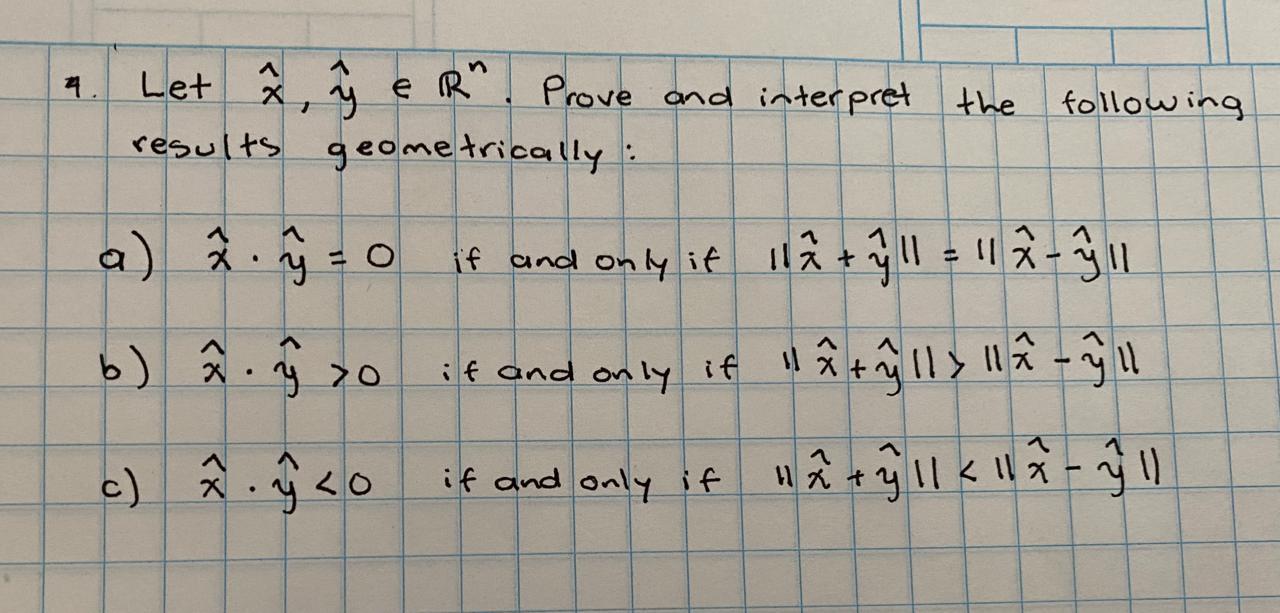 4. Let x̂, ŷ ∈ ℝⁿ. Prove and interpret the following
results geometrically:
a) x̂ · ŷ = 0 if and only if ||x̂ + ŷ|| = ||x̂ - ŷ||
b) x̂ · ŷ > 0 if and only if ||x̂ + ŷ|| > ||x̂ - ŷ||
c) x̂ · ŷ < 0 if and only if ||x̂ + ŷ|| < ||x̂ - ŷ||